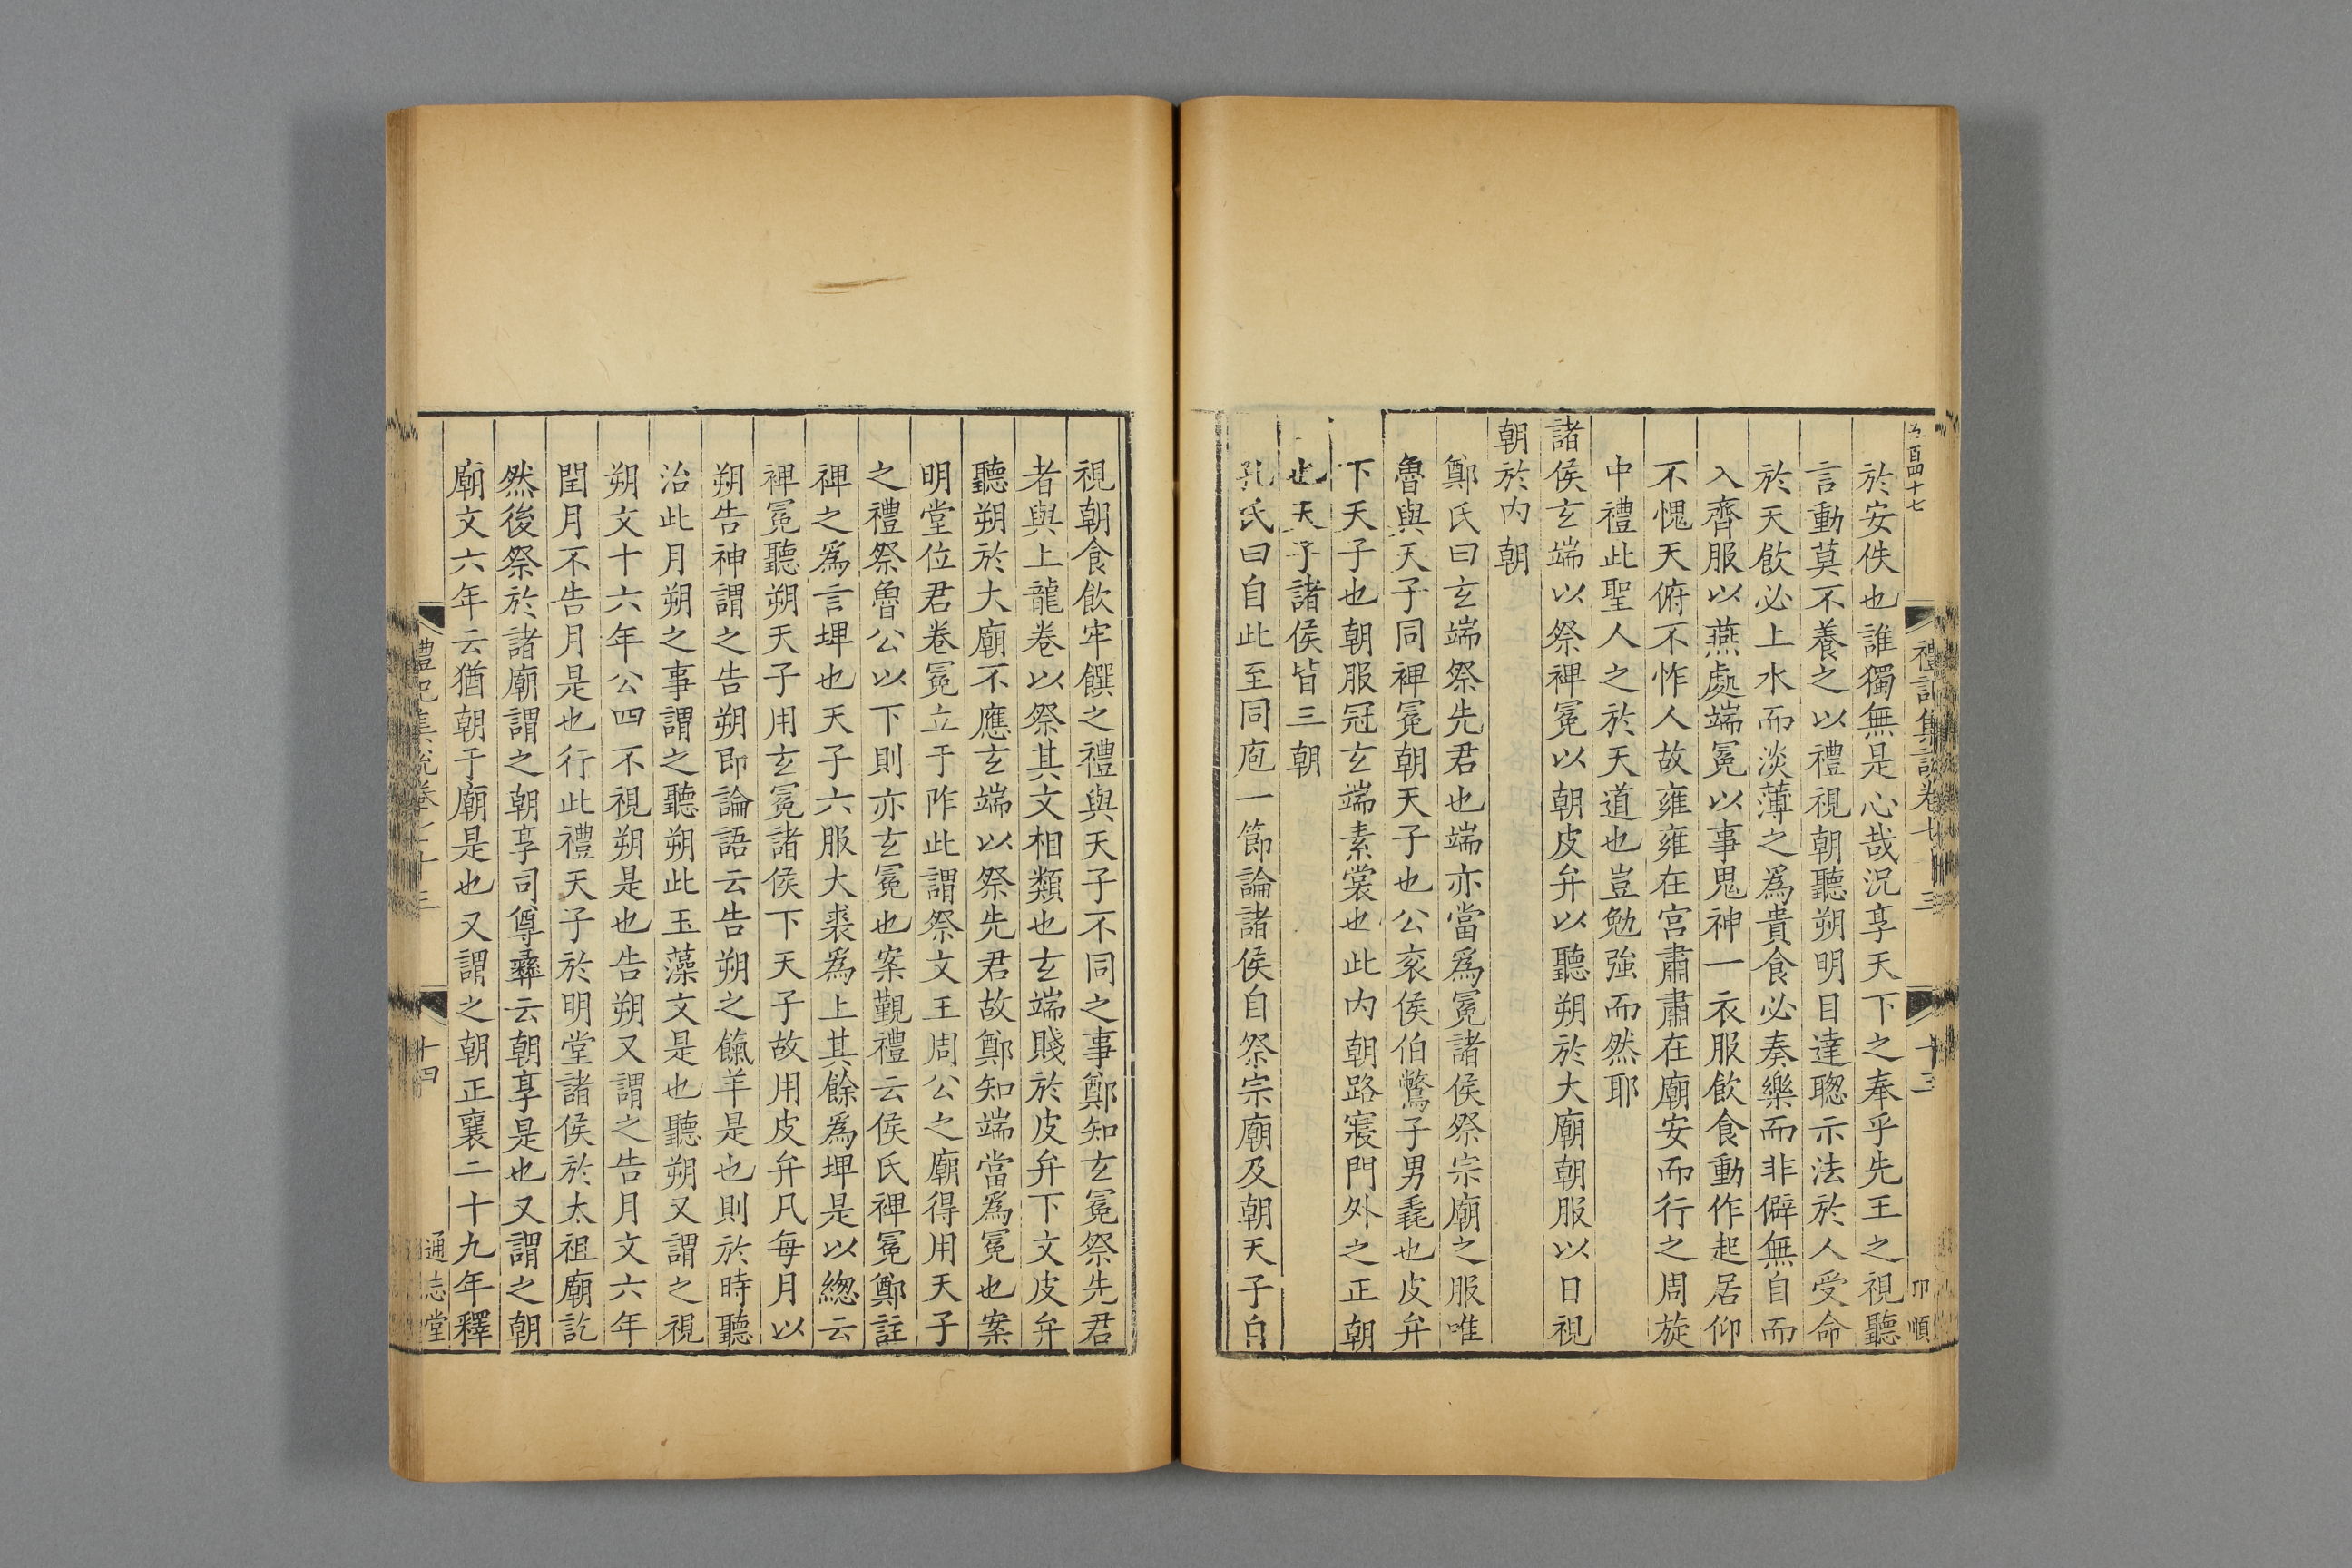 於安佚也誰獨無是心哉況享天下之奉乎先王之視聽
言動莫不養之以禮視朝聽朔明目達聰示法於人受命
於天飲必上水而淡薄之爲貴食必奏樂而非僻無自而
入齊服以燕處端冕以事鬼神一衣服飲食動作起居仰
不愧天俯不怍人故雍雍在宮肅肅在廟安而行之周旋
中禮此聖人之於天道也豈勉強而然耶
諸侯玄端以祭裨冕以朝皮弁以聽朔於大廟朝服以日視
朝於內朝
鄭氏曰玄端祭先君也端亦當爲冕諸侯祭宗廟之服唯
魯與天子同裨冕朝天子也公袞侯伯鷩子男毳也皮弁
下天子也朝服冠玄端素裳也此內朝路寢門外之正朝
也天子諸侯皆三朝
孔氏曰自此至同庖一節論諸侯自祭宗廟及朝天子自
視朝食飲牢饌之禮與天子不同之事鄭知玄冕祭先君
者與上龍卷以祭其文相類也玄端賤於皮弁下文皮弁
聽朔於大廟不應玄端以祭先君故鄭知端當爲冕也案
明堂位君卷冕立于阼此謂祭文王周公之廟得用天子
之禮祭魯公以下則亦玄冕也案覲禮云侯氏裨冕鄭註
裨之爲言埤也天子六服大裘爲上其餘爲埤是以緫云
裨冕聽朔天子用玄冕諸侯下天子故用皮弁凡每月以
朔告神謂之告朔即論語云告朔之餼羊是也則於時聽
治此月朔之事謂之聽朔此玉藻文是也聽朔又謂之視
朔文十六年公四不視朔是也告朔又謂之告月文六年
閏月不告月是也行此禮天子於明堂諸侯於太祖廟訖
然後祭於諸廟謂之朝享司尊彝云朝享是也又謂之朝
廟文六年云猶朝于廟是也又謂之朝正襄二十九年釋
禮記集說卷七十三
十四
通志堂